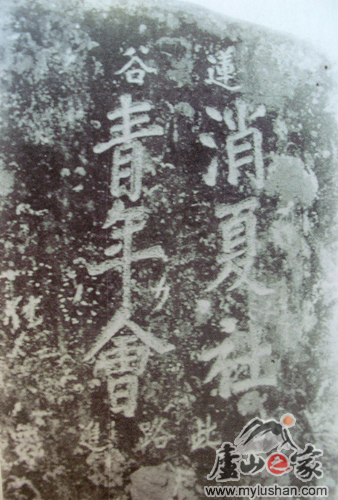 蓮谷
消夏社
青年會
此路進
廬山之家
www.mylushan.com